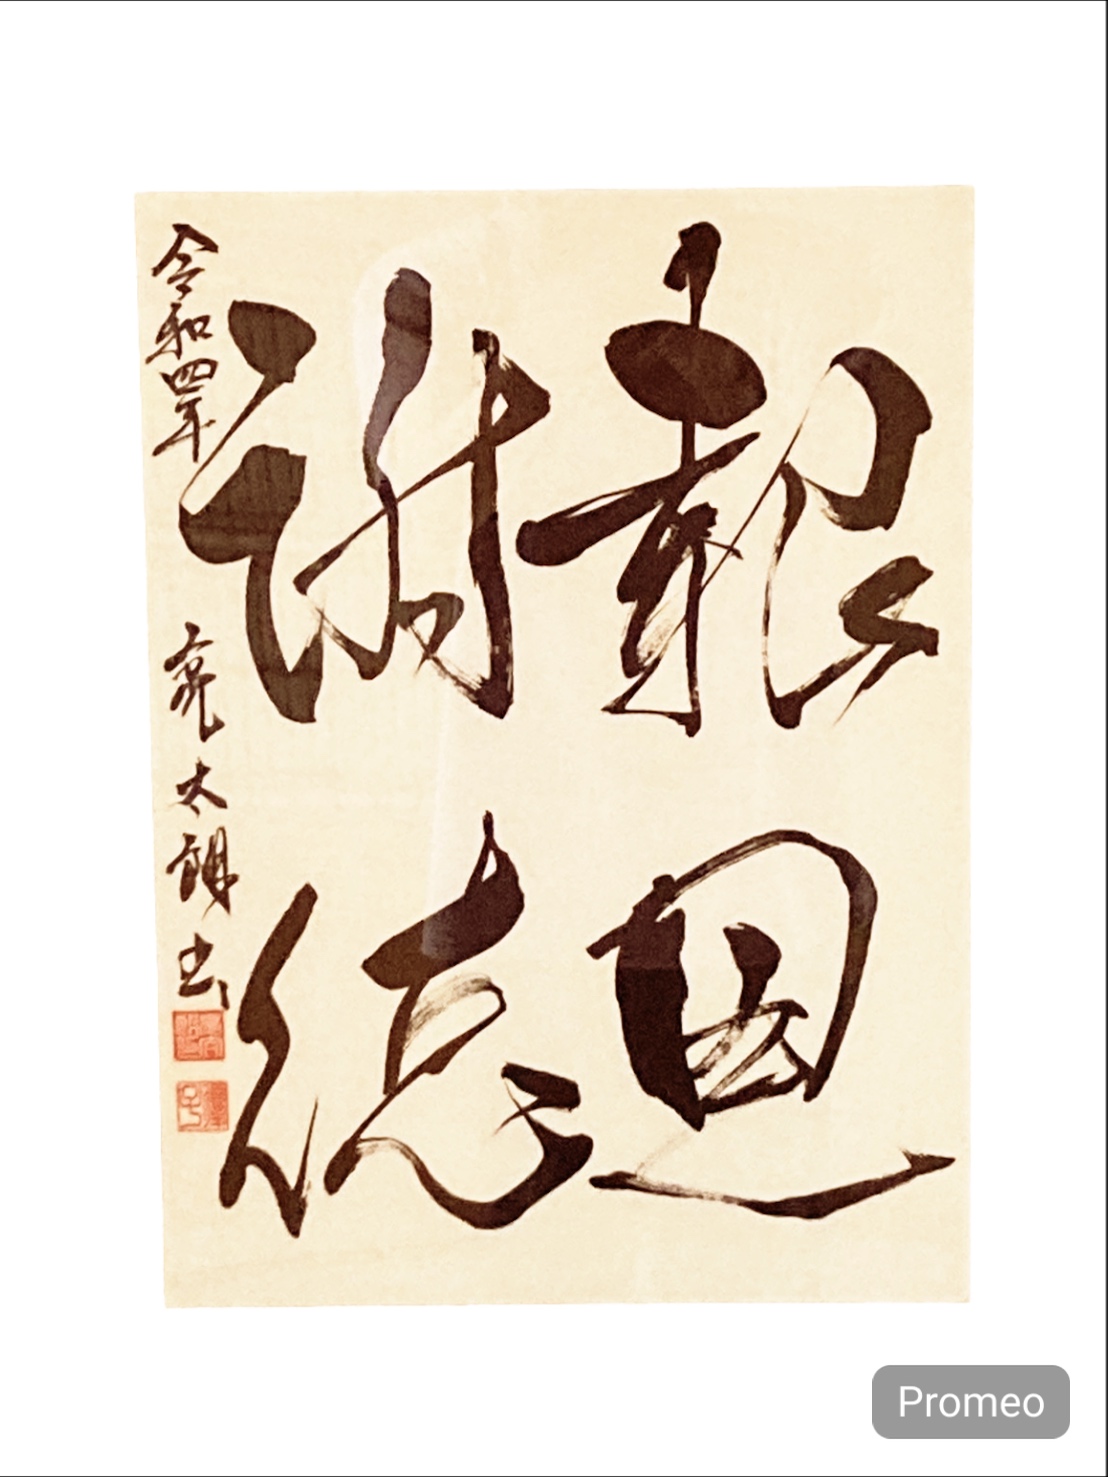 報恩
謝徳
令和四年 亮太朗書
Promeo